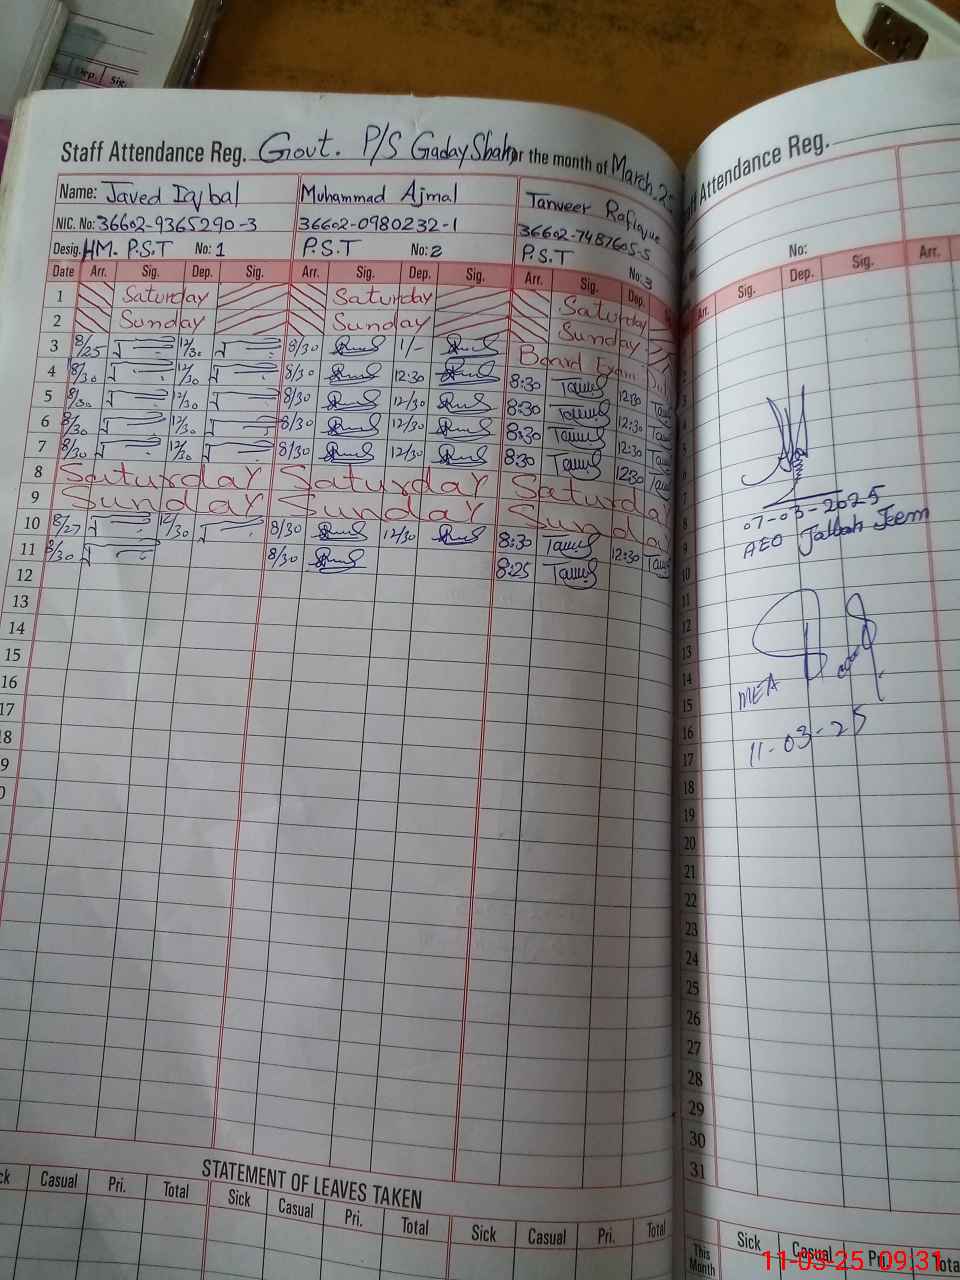 Dep. Sig.
Staff Attendance Reg. Govt. P/S Gaday Shah for the month of March.
Name: Javed Iqbal Muhammad Ajmal Tanveer Rafique
NIC. No: 36602-9365290-3 36602-0980232-1 36602-7487605-5
Desig. HM. P.S.T No: 1 P.S.T No: 2 P.S.T No: 3
Date Arr. Sig. Dep. Sig. Arr. Sig. Dep. Sig. Arr. Sig. Dep.
1 Saturday Saturday Saturday
2 Sunday Sunday Sunday
3 8/25 12/30 8/30 1/- Board Exam
4 8/30 12/30 8/30 12:30 8:30 12:30
5 8/30 12/30 8/30 12/30 8:30 12:30
6 8/30 12/30 8/30 12/30 8:30 12:30
7 8/30 12/30 8/30 12/30 8:30 12:30
8 Saturday Saturday Saturday
9 Sunday Sunday Sunday
10 8/27 12/30 8/30 12/30 8:30 12:30
11 8/30 8/30 8:25
12
13
14
15
16
17
18
9
0
STATEMENT OF LEAVES TAKEN
ck Casual Pri. Total Sick Casual Pri. Total Sick Casual Pri. Total
Attendance Reg.
No:
Arr. Sig. Dep. Sig. Arr.
07-03-2025
AEO Jallah Jeem
MEA
11-03-25
7
8
9
10
11
12
13
14
15
16
17
18
19
20
21
22
23
24
25
26
27
28
29
30
31
This Month Sick Casual Pri. Total
11-03-25 09:31